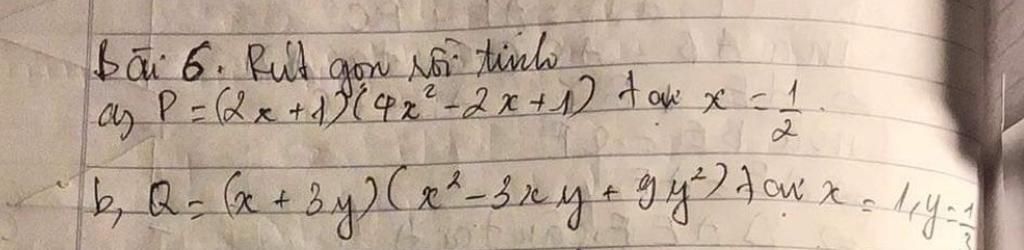 bài 6. Rút gọn rồi tính
a, P = (2x+1)(4x² - 2x + 1) tại x = 1/2.
b, Q = (x + 3y)(x² - 3xy + 9y²) tại x = 1, y =